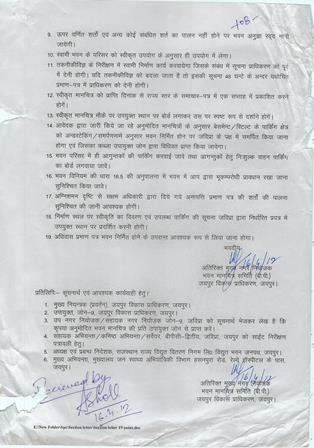 -108-
9. ऊपर वर्णित शर्तों एवं अन्य कोई संबंधित शर्त का पालन नहीं होने पर भवन अनुज्ञा रद्द मानी
जायेगी।
10. स्वामी भवन के परिसर को स्वीकृत उपयोग के अनुसार ही उपयोग में लेगा।
11. तकनीकीविज्ञ के निरीक्षण में स्वामी निर्माण कार्य करवायेगा जिसके संबंध में सूचना प्राधिकरण को पूर्व
में देनी होगी। यदि तकनीकीविज्ञ को बदला जाता है तो इसकी सूचना 48 घण्टे के अन्दर यथोचित
प्रमाण–पत्र में प्राधिकरण को देनी होगी।
12. स्वीकृत मानचित्र को प्राप्ति दिनांक से राज्य स्तर के समाचार–पत्र में एक सप्ताह में प्रकाशित करने
होंगे।
13. स्वीकृत मानचित्र मौके पर उपयुक्त स्थान पर बोर्ड लगाकर उस पर स्पष्ट रूप से दर्शाने होंगे।
14. आवेदक द्वारा जारी किये जा रहे अनुमोदित मानचित्रों के अनुसार बेसमेन्ट/स्टिल्ट के पार्किंग क्षेत्रों
को अन्डरटेकिंग/समर्पणनामे अनुसार भवन निर्मित होने पर जविप्रा के पक्ष में समर्पित किया जाना
होगा एवं जिसका कब्जा उपायुक्त जोन द्वारा विधिवत प्राप्त किया जायेगा।
15. भवन परिसर में ही आगुन्तकों की पार्किंग करवाई जावे तथा आगन्तुकों हेतु निःशुल्क वाहन पार्किंग
का बोर्ड लगवाया जावे।
16. भवन विनियम की धारा 16.5 की अनुपालना में भवन में आप द्वारा भूकम्परोधी प्रावधान रखा जाना
सुनिश्चित किया जावे।
17. अग्निशमन दृष्टि से सक्षम अधिकारी द्वारा दिये गये अनापत्ति प्रमाण पत्र की शर्तों की पालना
सुनिश्चित की जानी आवश्यक होगी।
18. निर्माण स्थल पर स्वीकृति का विवरण एवं उपलब्ध पार्किंग की सूचना जविप्रा द्वारा निर्धारित प्रपत्र में
उपयुक्त स्थान पर प्रदर्शित करनी होगी।
19. अधिवास प्रमाण पत्र भवन निर्मित होने के उपरान्त आवश्यक रूप से लिया जाना होगा।
भवदीय
16/4/12
अतिरिक्त मुख्य नगर नियोजक
भवन मानचित्र समिति (बी.पी.)
जयपुर विकास प्राधिकरण, जयपुर।
प्रतिलिपिः– सूचनार्थ एवं आवश्यक कार्यवाही हेतु।
1. मुख्य नियन्त्रक (प्रवर्तन), जयपुर विकास प्राधिकरण, जयपुर।
2. उपायुक्त, जोन–9, जयपुर विकास प्राधिकरण, जयपुर।
3. उप नगर नियोजक/सहायक नगर नियोजक जोन–9, जविप्रा को सूचनार्थ भेजकर लेख है कि
कृपया अनुमोदित भवन मानचित्र की प्रति उपायुक्त जोन से प्राप्त करे।
4. सहायक अभियन्ता/कनिष्ठ अभियन्ता/सर्वेयर, बीपीसी–द्वितीय, जविप्रा, जयपुर को साईट निरीक्षण
पत्रावली हेतु।
5. अध्यक्ष एवं प्रबन्ध निदेशक, राजस्थान राज्य विद्युत वितरण निगम लि० विद्युत भवन जनपथ, जयपुर।
6. मुख्य अभियन्ता, मुख्यालय जन स्वास्थ्य अभियांत्रिकी विभाग हसनपुरा रोड, रेल्वे हॉस्पीटल के पास,
जयपुर।
16/4/12
अतिरिक्त मुख्य नगर नियोजक
भवन मानचित्र समिति (बी.पी.)
जयपुर विकास प्राधिकरण, जयपुर।
Received by
Ashok
16.4.12